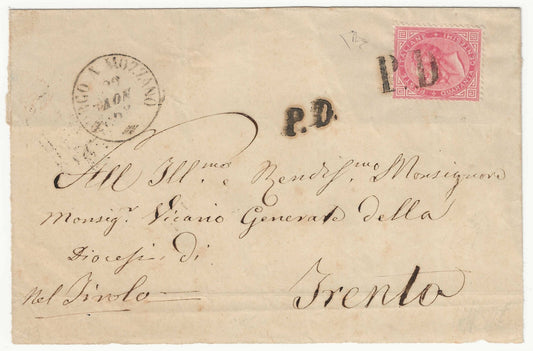 P D
BORGO A MOZZANO
NOV
P.D.
All Ill.mo e Rendiss.mo Monsignore
Monsig.r Vicario Generale della
Diocesi di
Nel Tirolo Trento